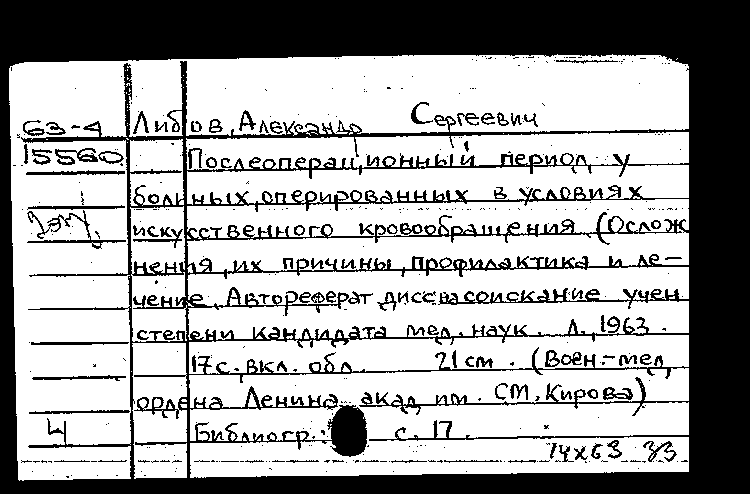 63-4 Либов, Александр Сергеевич
15560 Послеоперационный период у
больных, оперированных в условиях
искусственного кровообращения (Ослож
нения, их причины, профилактика и ле-
чение. Автореферат дисс на соискание учен
степени кандидата мед. наук. Л., 1963.
17с. вкл. обл. 21см. (Воен.-мед.
ордена Ленина акад им. СМ. Кирова)
Ц Библиогр.: с. 17.
14x63 33